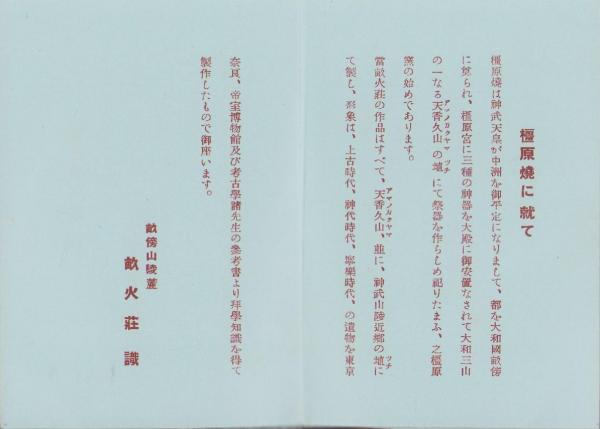 橿原燒に就て
橿原燒は神武天皇が中洲を御平定になりまして、都を大和國畝傍
に奠られ、橿原宮に三種の神器を大殿に御安置なされて大和三山
の一なる天香久山の埴にて祭器を作らしめ祀りたまふ、之橿原
アマノカクヤマ ツチ
窯の始めであります。
當畝火莊の作品はすべて、天香久山、並に、神武山陵近鄕の埴に
アマノカクヤマ ツチ
て製し、形象は、上古時代、神代時代、寧樂時代、の遺物を東京
奈良、帝室博物館及び考古學諸先生の參考書より拜學知識を得て
製作したもので御座います。
畝傍山陵薹
畝火莊識